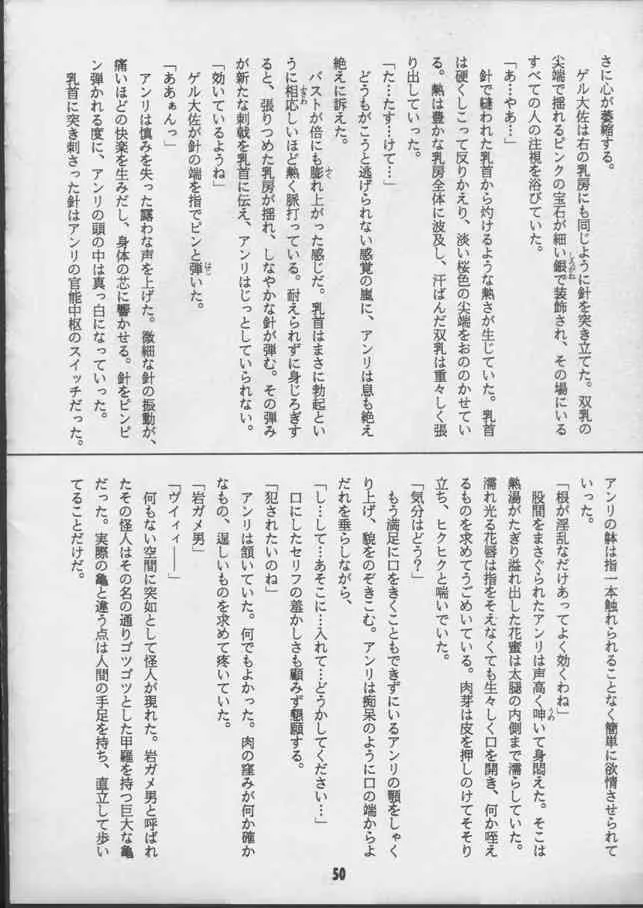 さに心が萎縮する。
ゲル大佐は右の乳房にも同じように針を突き立てた。双乳の
尖端で揺れるピンクの宝石が細い銀で装飾され、その場にいる
しろがね
すべての人の注視を浴びていた。
「あ…やあ…」
針で縫われた乳首から灼けるような熱さが生じていた。乳首
は硬くしこって反りかえり、淡い桜色の尖端をおののかせてい
る。熱は豊かな乳房全体に波及し、汗ばんだ双乳は重々しく張
り出していった。
「た…たす…けて…」
どうもがこうと逃げられない感覚の嵐に、アンリは息も絶え
絶えに訴えた。
バストが倍にも膨れ上がった感じだ。乳首はまさに勃起とい
ふく
うに相応しいほど熱く脈打っている。耐えられずに身じろぎす
ふさわ
ると、張りつめた乳房が揺れ、しなやかな針が弾む。その弾み
が新たな刺戟を乳首に伝え、アンリはじっとしていられない。
「効いているようね」
ゲル大佐が針の端を指でピンと弾いた。
はじ
「ああぁんっ」
アンリは慎みを失った露わな声を上げた。微細な針の振動が、
痛いほどの快楽を生みだし、身体の芯に響かせる。針をピンピ
ン弾かれる度に、アンリの頭の中は真っ白になっていった。
乳首に突き刺さった針はアンリの官能中枢のスイッチだった。
アンリの躰は指一本触れられることなく簡単に欲情させられて
いった。
「根が淫乱なだけあってよく効くわね」
股間をまさぐられたアンリは声高く呻いて身悶えた。そこは
うめ
熱湯がたぎり溢れ出した花蜜は太腿の内側まで濡らしていた。
濡れ光る花唇は指をそえなくても生々しく口を開き、何か咥え
るものを求めてうごめいている。肉芽は皮を押しのけてそそり
立ち、ヒクヒクと喘いでいた。
「気分はどう?」
もう満足に口をきくこともできずにいるアンリの顎をしゃく
り上げ、貌をのぞきこむ。アンリは痴呆のように口の端からよ
だれを垂らしながら、
「し…して…あそこに…入れて…どうかしてください…」
口にしたセリフの羞かしさも顧みず懇願する。
「犯されたいのね」
アンリは頷いていた。何でもよかった。肉の窪みが何か確か
なもの、逞しいものを求めて疼いていた。
「岩ガメ男」
「ヴイィィ――」
何もない空間に突如として怪人が現れた。岩ガメ男と呼ばれ
たその怪人はその名の通りゴツゴツとした甲羅を持つ巨大な亀
だった。実際の亀と違う点は人間の手足を持ち、直立して歩い
てることだけだ。
50